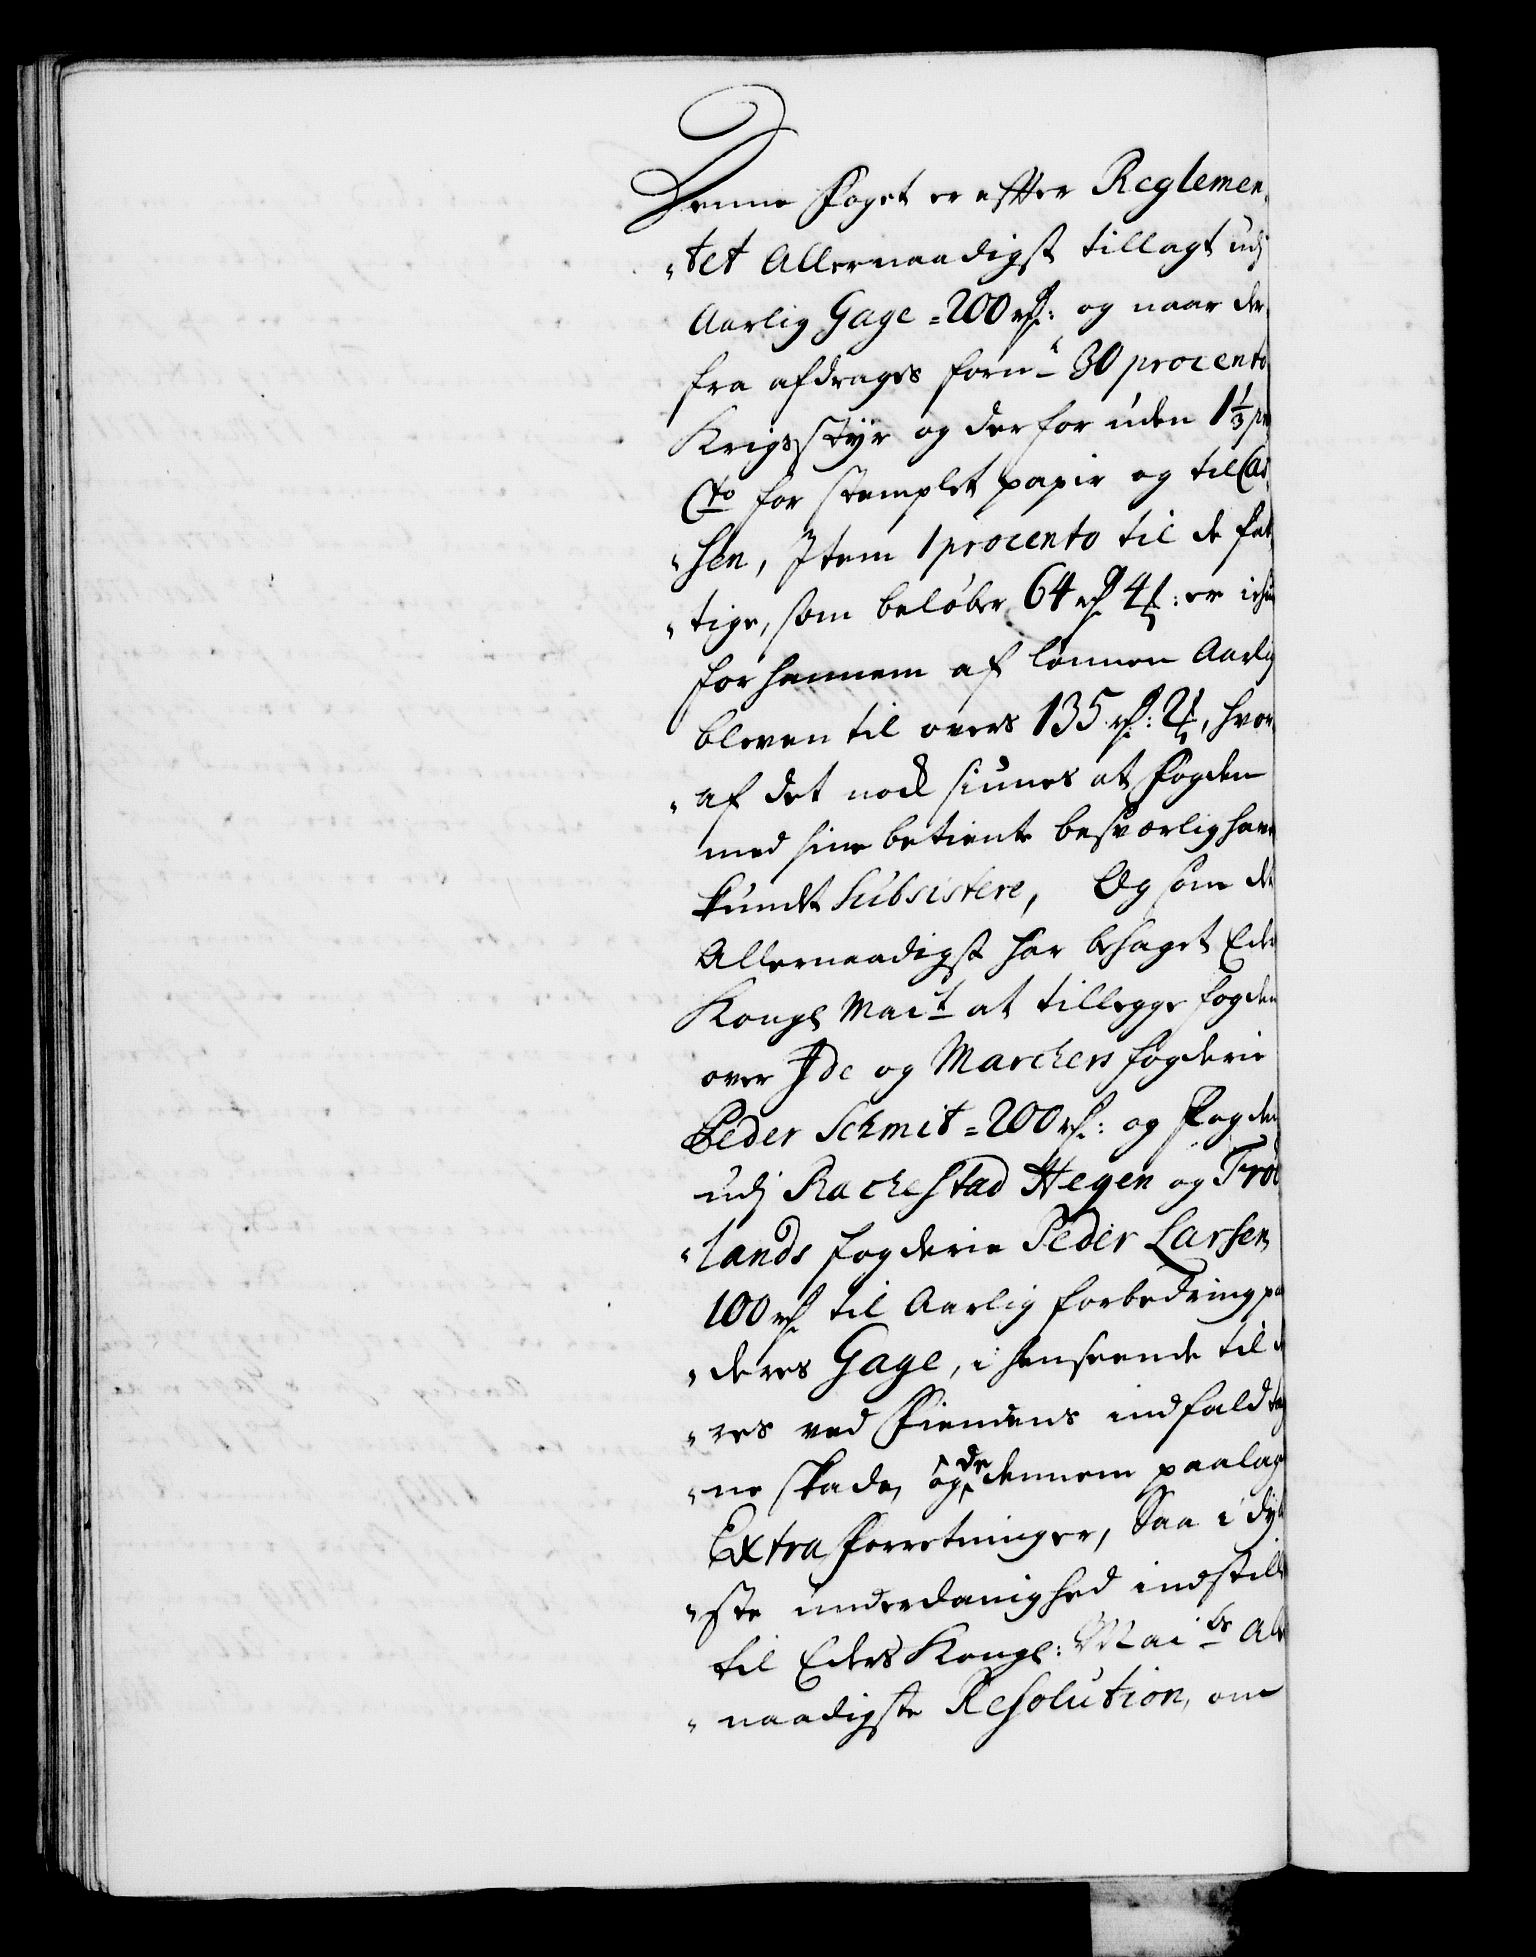 Denne Foget er effter Reglemen,
"tet Allernaadigst tillagt udj
Aarlig Gage =200 rd: og naar der
fra afdrages forne 30 procento
Krigsstÿr og der for uden 1 1/3 pr
Cto for stemplet papir og til Cas
"sen, Item 1 procento til de fat
"tige, som beløber 64 rd 4 s: er ickun
for hannem af lønnen Aarlig
bleven til overs 135 rd: 2 s, hvor
"af det nock siunes at Fogden
med sine betiente besværlig have
kundet Subsistere, Og som det
Allernaadigst har behaget Eders
Kongl Mait at tillegge fogden
over Ide og Marckers fogderie
Peder Schmit =200 rd: og Fogden
udj Rachestad Heyen og Frø
"lands fogderie Peder Larsen,
100 rd til Aarlig forbedring paa
"deres Gage, i henseende til de
"res ved Fiendens indfald tag
"ne skade, og de dennem paalag
Extra forretninger, Saa i dÿb
"ste underdanighed indstilles
til Eders Kongl: Maits Aller
"naadigste Resolution, om